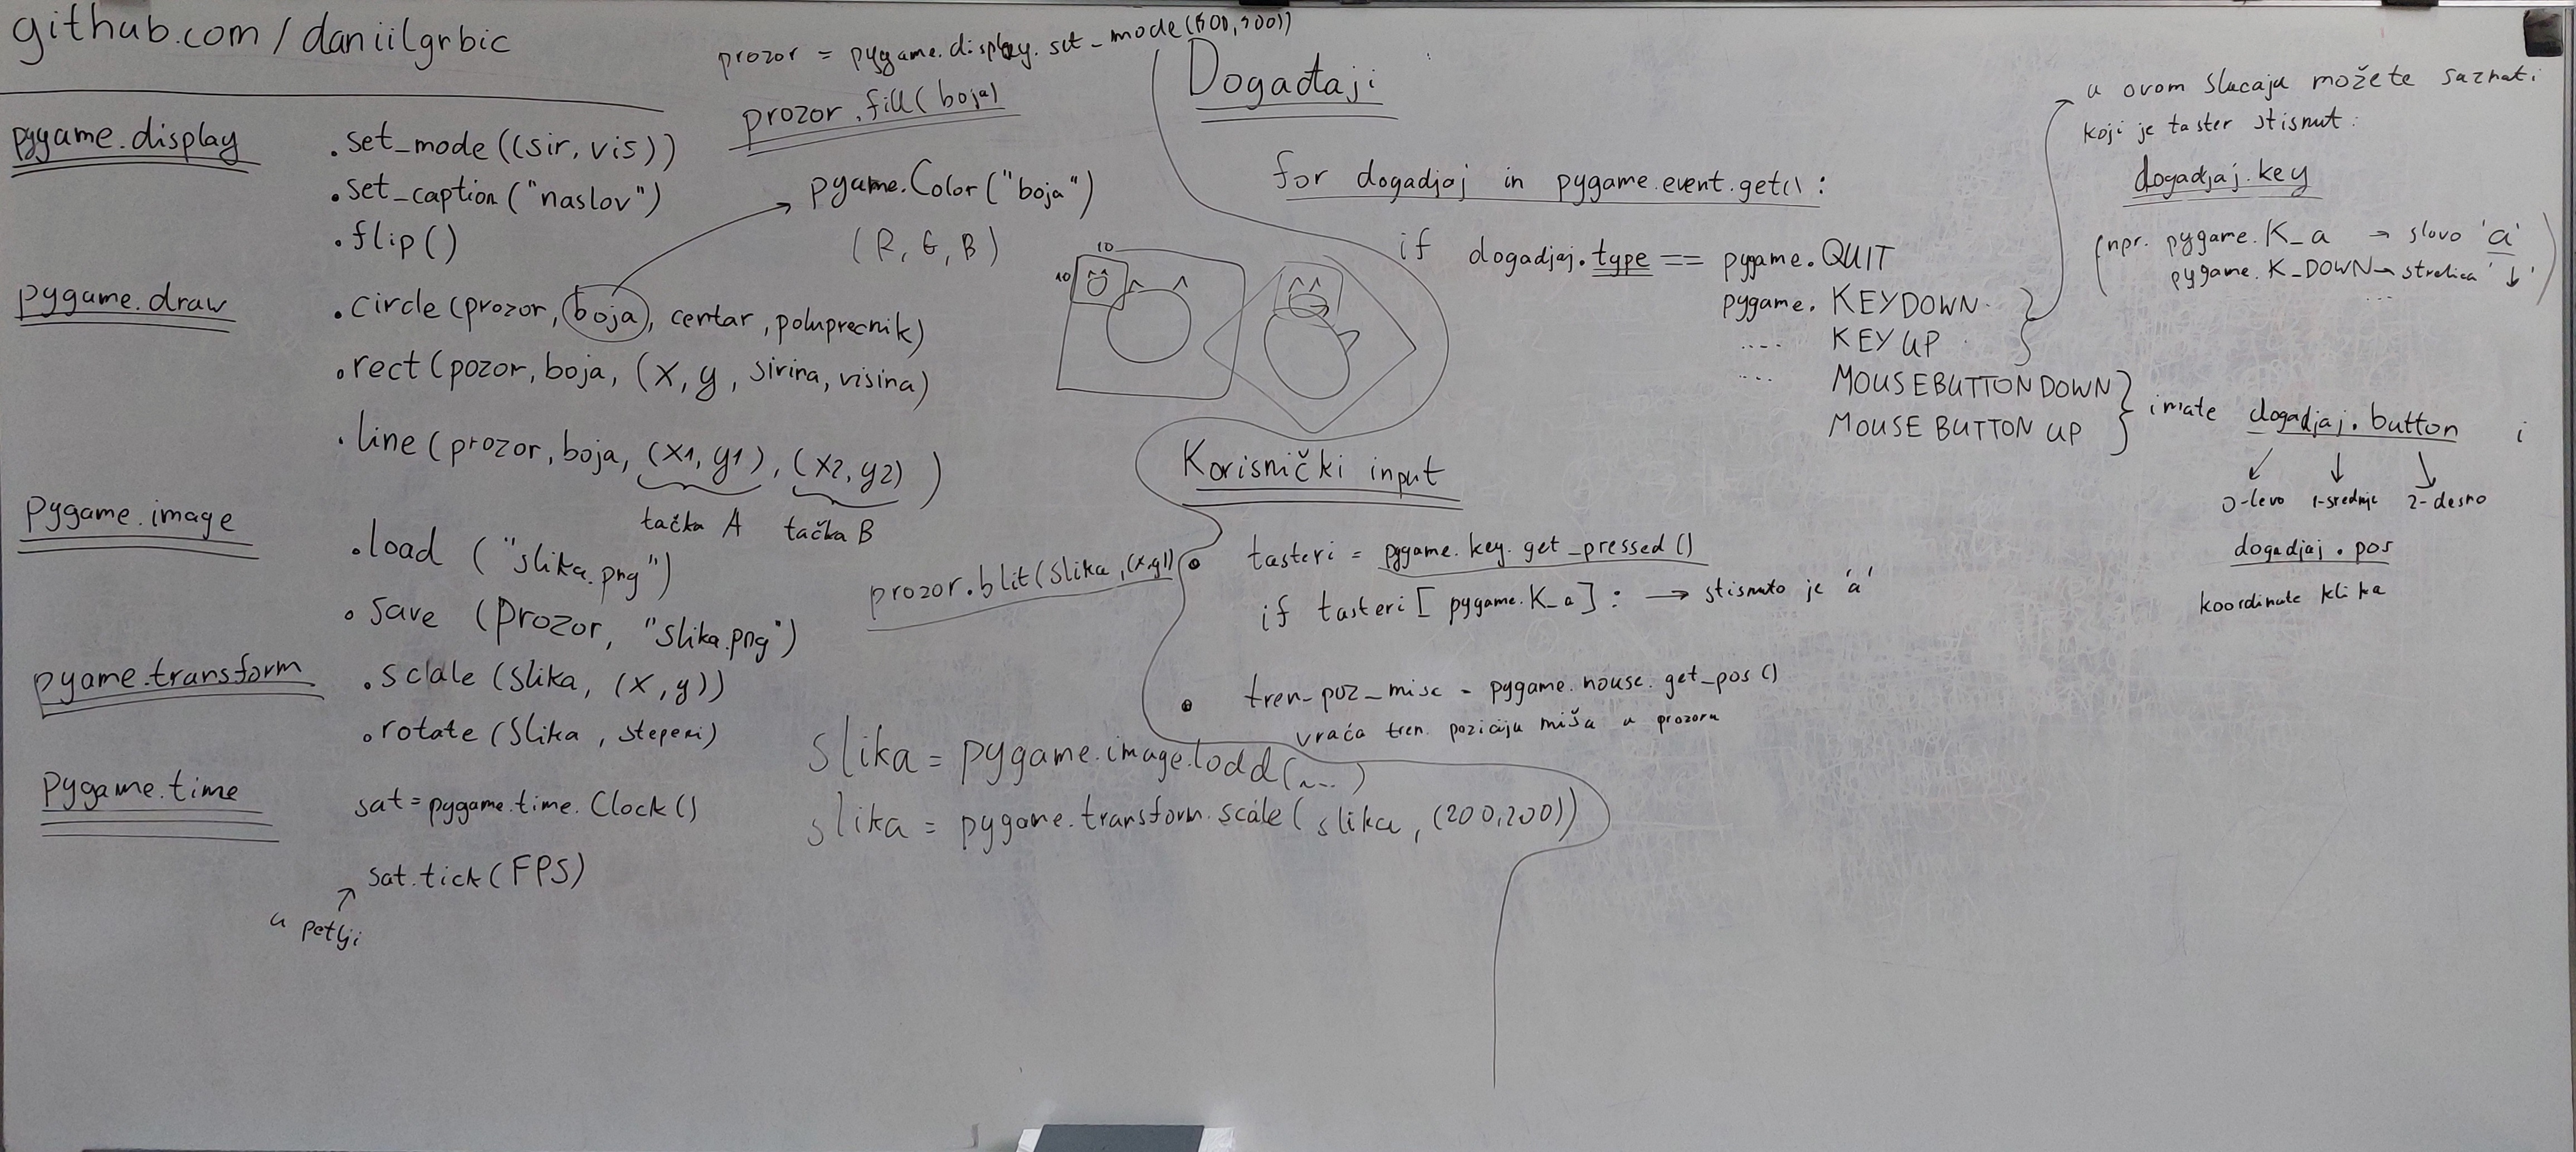 github.com/daniilgrbic
prozor = pygame.display.set_mode((500,500))
prozor.fill(boja)
pygame.display
.set_mode((sir, vis))
.set_caption("naslov")
.flip()
pygame.Color("boja")
(R, G, B)
pygame.draw
.circle(prozor, boja, centar, poluprecnik)
.rect(pozor, boja, (x, y, sirina, visina)
.line(prozor, boja, (x1, y1), (x2, y2))
tačka A tačka B
10
10
pygame.image
.load ("slika.png")
.save (prozor, "slika.png")
prozor.blit(slika, (x,y))
pygame.transform
.sclale (slika, (x, y))
.rotate (slika, stepeni)
pygame.time
sat=pygame.time.Clock()
sat.tick(FPS)
u petlji
slika = pygame.image.load(...)
slika = pygame.transform.scale(slika, (200,200))
Događaji
for dogadjaj in pygame.event.get():
if dogadjaj.type == pygame.QUIT
pygame. KEYDOWN
.... KEYUP
.... MOUSEBUTTONDOWN
MOUSEBUTTON UP
u ovom slucaju možete saznati
koji je taster stisnut:
dogadjaj.key
(npr. pygame.K_a → slovo 'a'
pygame.K_DOWN → strelica '↓')
...
imate dogadjaj.button i
0-levo 1-srednje 2-desno
dogadjaj.pos
koordinate klika
Korisnički input
tasteri = pygame.key.get_pressed()
if tasteri[pygame.K_a]: → stisnuto je 'a'
tren_poz_misa = pygame.mouse.get_pos()
vraća tren. poziciju miša u prozoru